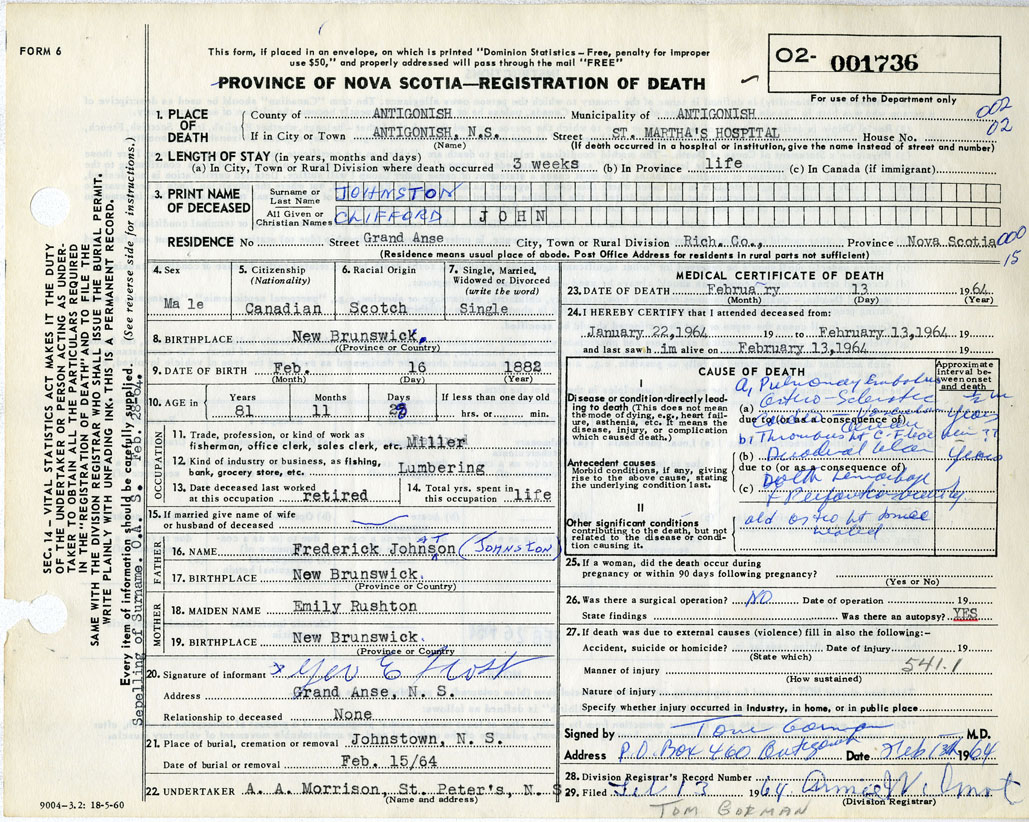 FORM 6
This form, if placed in an envelope, on which is printed "Dominion Statistics – Free, penalty for improper
use $50," and properly addressed will pass through the mail "FREE"
PROVINCE OF NOVA SCOTIA—REGISTRATION OF DEATH
O2- 001736
For use of the Department only
002
02
1. PLACE OF DEATH
County of ANTIGONISH Municipality of ANTIGONISH
If in City or Town ANTIGONISH, N.S. Street ST. MARTHA'S HOSPITAL House No.
(Name) (If death occurred in a hospital or institution, give the name instead of street and number)
2. LENGTH OF STAY (in years, months and days)
(a) In City, Town or Rural Division where death occurred 3 weeks (b) In Province life (c) In Canada (if immigrant)
3. PRINT NAME OF DECEASED
Surname or Last Name JOHNSTON
All Given or Christian Names CLIFFORD JOHN
RESIDENCE No Street Grand Anse City, Town or Rural Division Rich. Co., Province Nova Scotia
000
15
(Residence means usual place of abode. Post Office Address for residents in rural parts not sufficient)
4. Sex
Male
5. Citizenship (Nationality)
Canadian
6. Racial Origin
Scotch
7. Single, Married, Widowed or Divorced (write the word)
Single
8. BIRTHPLACE New Brunswick.
(Province or Country)
9. DATE OF BIRTH Feb. 16 1882
(Month) (Day) (Year)
10. AGE in
Years Months Days If less than one day old
81 11 28 hrs. or min.
OCCUPATION
11. Trade, profession, or kind of work as
fisherman, office clerk, sales clerk, etc. Miller
12. Kind of industry or business, as fishing,
bank, grocery store, etc. Lumbering
13. Date deceased last worked
at this occupation retired
14. Total yrs. spent in
this occupation life
15. If married give name of wife
or husband of deceased
FATHER
16. NAME Frederick Johnson (JOHNSTON)
17. BIRTHPLACE New Brunswick.
(Province or Country)
MOTHER
18. MAIDEN NAME Emily Rushton
19. BIRTHPLACE New Brunswick.
(Province or Country)
20. Signature of informant
Address Grand Anse, N. S.
Relationship to deceased None
21. Place of burial, cremation or removal Johnstown, N. S.
Date of burial or removal Feb. 15/64
22. UNDERTAKER A. A. Morrison, St. Peter's, N. S
(Name and address)
MEDICAL CERTIFICATE OF DEATH
23. DATE OF DEATH February 13 1964
(Month) (Day) (Year)
24. I HEREBY CERTIFY that I attended deceased from:
January 22,1964 19 to February 13,1964 19
and last saw h im alive on February 13,1964 19
CAUSE OF DEATH
Approximate interval between onset and death
I
Disease or condition directly leading to death (This does not mean the mode of dying, e.g., heart failure, asthenia, etc. It means the disease, injury, or complication which caused death.)
a, Pulmonary Embolus
(a)
due to (or as a consequence of)
(b)
due to (or as a consequence of)
(c)
Antecedent causes
Morbid conditions, if any, giving rise to the above cause, stating the underlying condition last.
II
Other significant conditions contributing to the death, but not related to the disease or condition causing it.
25. If a woman, did the death occur during
pregnancy or within 90 days following pregnancy?
(Yes or No)
26. Was there a surgical operation? NO Date of operation 19
State findings Was there an autopsy? YES
27. If death was due to external causes (violence) fill in also the following:–
Accident, suicide or homicide? Date of injury 19
(State which)
541.1
Manner of injury
(How sustained)
Nature of injury
Specify whether injury occurred in industry, in home, or in public place
Signed by Tom Gorman M.D.
Address P.O. Box 460 Antigonish Date Feb 13th 1964
28. Division Registrar's Record Number
29. Filed Feb 13 1964
(Division Registrar)
TOM GORMAN
9004–3.2: 18-5-60
SEC. 14 – VITAL STATISTICS ACT MAKES IT THE DUTY
OF THE UNDERTAKER OR PERSON ACTING AS UNDER-
TAKER TO OBTAIN ALL THE PARTICULARS REQUIRED
IN THE "REGISTRATION OF DEATH" AND TO FILE THE
SAME WITH THE DIVISION REGISTRAR WHO SHALL ISSUE THE BURIAL PERMIT.
WRITE PLAINLY WITH UNFADING INK. THIS IS A PERMANENT RECORD.
Every item of information should be carefully supplied. (See reverse side for instructions.)
Sepelling of Surname. O.A. S. Feb. 28-64.